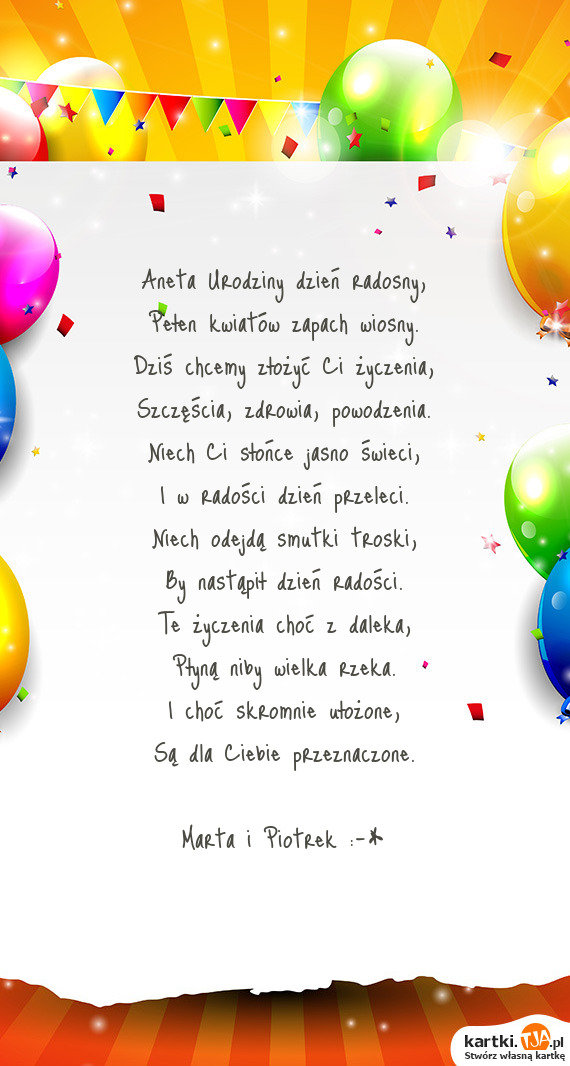 Aneta Urodziny dzień radosny,
Pełen kwiatów zapach wiosny.
Dziś chcemy złożyć Ci życzenia,
Szczęścia, zdrowia, powodzenia.
Niech Ci słońce jasno świeci,
I w radości dzień przeleci.
Niech odejdą smutki troski,
By nastąpił dzień radości.
Te życzenia choć z daleka,
Płyną niby wielka rzeka.
I choć skromnie ułożone,
Są dla Ciebie przeznaczone.
Marta i Piotrek :-*
kartki.TJA.pl
Stwórz własną kartkę